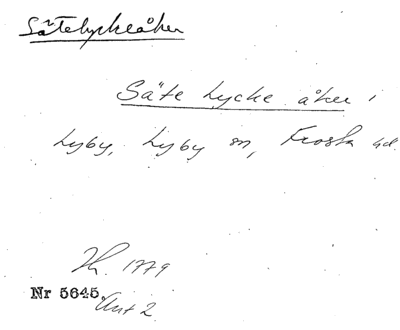 Sätelyckeåker
Säte Lycke åker i
Lyby, Lyby sn, Frosta hd.
Sk. 1779
Nr 5645. Akt 2